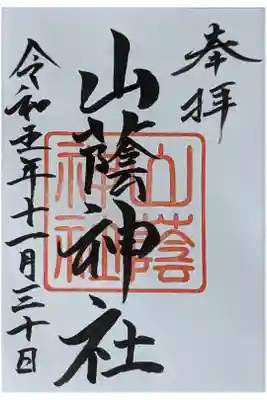 奉拝
山蔭神社
山蔭神社
令和五年十一月三十日